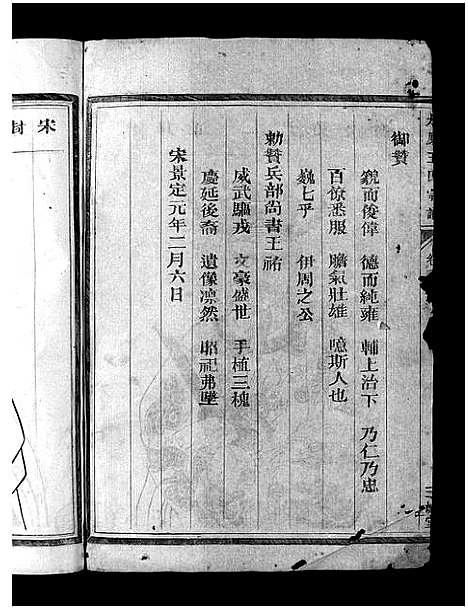 御贊
貌而俊偉　德而純雍　輔上治下　乃仁乃忠
百僚悉服　膽氣壯雄　噫斯人也
巍七乎　伊周之公
勅贊兵部尚書王祐
威武驅戎　文豪盛世　手植三槐
慶延後裔　遺像凛然　昭祀弗墜
宋景定元年二月六日
宋封